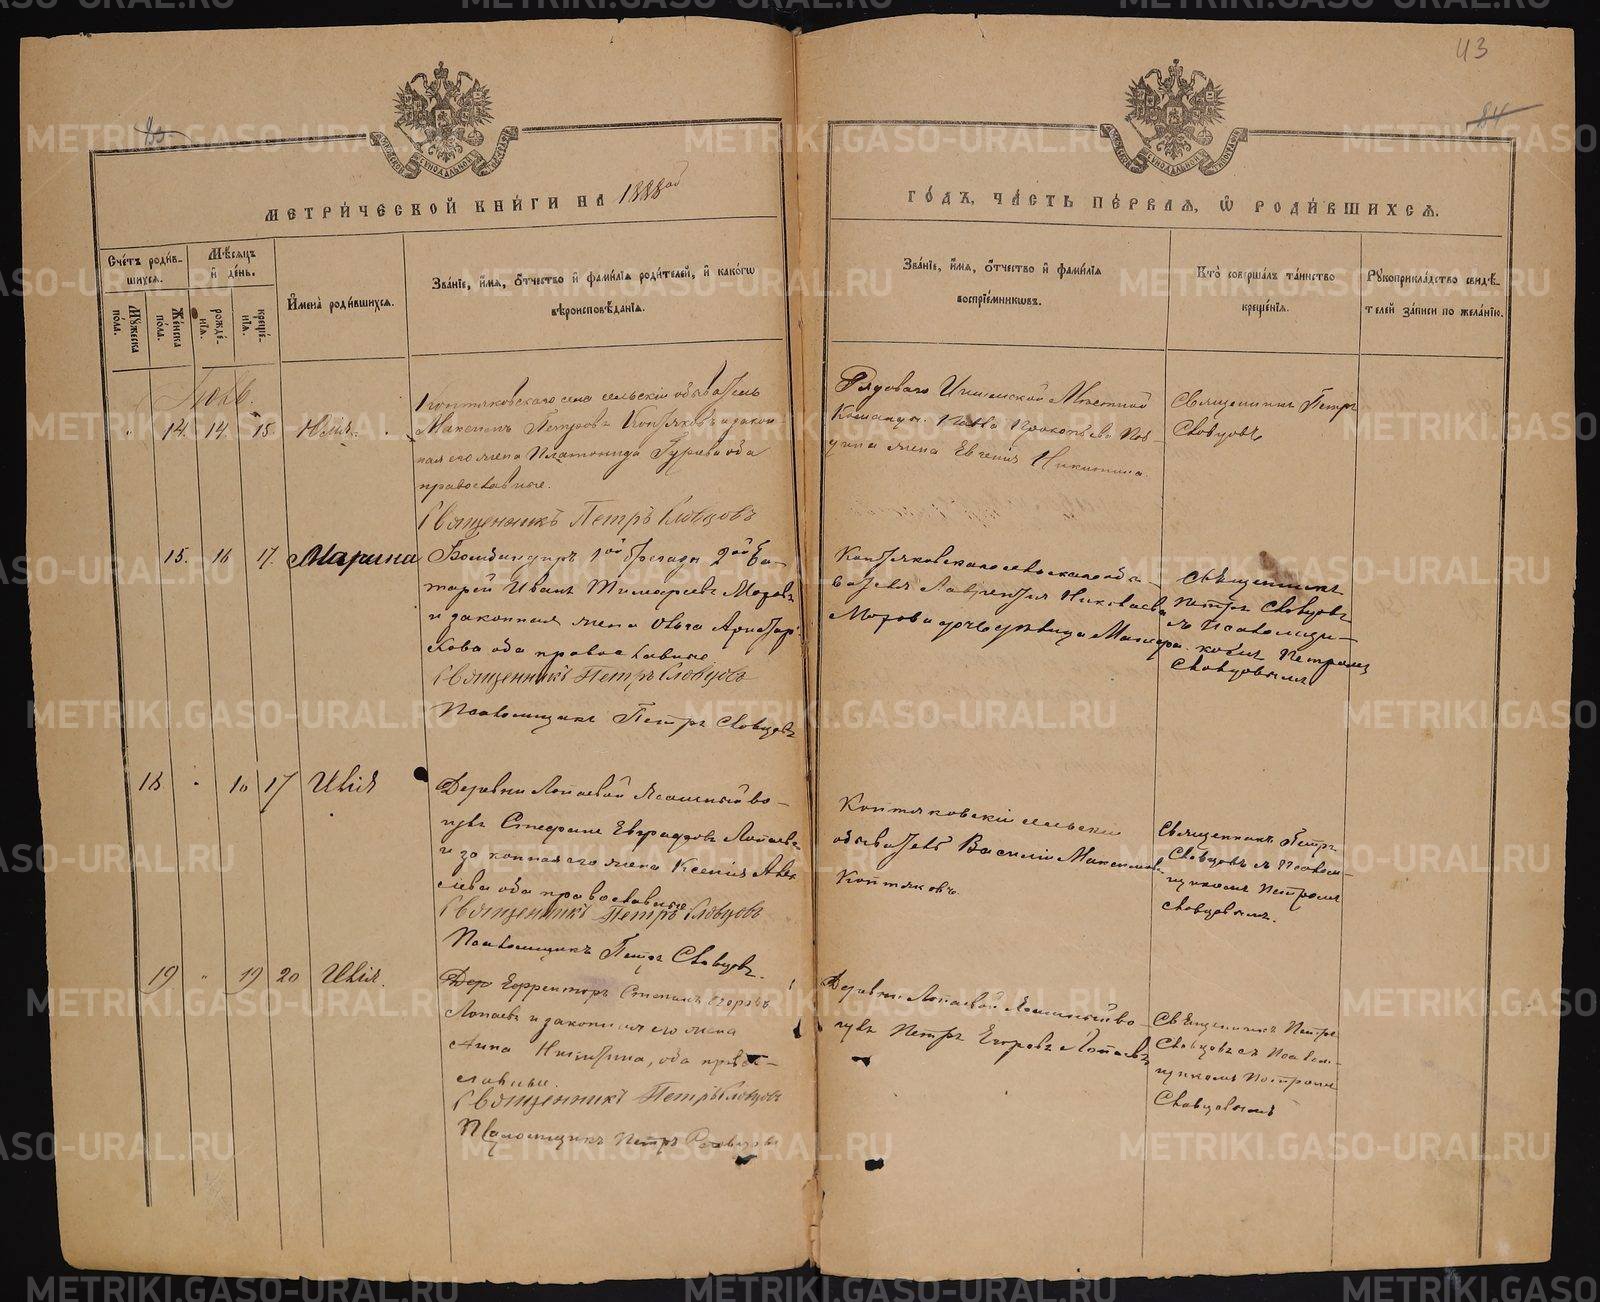 43
МЕТРИ́ЧЕСКОЙ КНИ́ГИ НА 1888ой
ГО́ДЪ, ЧА́СТЬ ПЕ́РВАЯ, Ѡ҆ РОДИ́ВШИХСЯ.
Сче́тъ роди́вшихся.
Му́жеска по́ла.
Же́нска по́ла.
Мѣ́сяцъ и҆ де́нь.
рожде́нїя.
креще́нїя.
И҆мена̀ роди́вшихся.
Зва́нїе, и҆́мя, ѻ҆́тчество и҆ фами́лїя роди́телей, и҆ како́гѡ
вѣроисповѣ́данїя.
Зва́нїе, и҆́мя, ѻ҆́тчество и҆ фами́лїя
воспрїе́мникѡвъ.
Кто̀ соверша́лъ та́инство
креще́нїя.
Рꙋкоприкла́дство свидѣ́-
телей за́писи по жела́нїю.
14. 14. 15. Юлія.
Коптяковскаго села сельскій обыватель
Максимъ Петровъ Коптяковъ и закон
ная его жена Платонида Гурьева оба
православные.
Священникъ Петръ Словцовъ
Рядоваго Ишимской Мѣстной
Команды Павла Прокопьева
жена Евгенія Никитина.
Священникъ Петръ
Словцовъ
15. 16 17. Марина
Бомбандиръ 1ой бригады 2ой Ба-
тареи Иванъ Тимофеевъ Моровъ
и законная жена Ольга Аристар
хова оба православные
Священникъ Петръ Словцовъ
Псаломщикъ Петръ Словцовъ
Коптяковскаго сельскаго обы-
вателя Лаврентія Николаева
Морова дочь дѣвица
Священникъ
Петръ Словцовъ
съ Псаломщи-
комъ Петромъ
Словцовымъ
18 " 16 17 Илія
Деревни Лопаевой Ясашный во-
Стефанъ Евграфовъ Лопаевъ
и законная его жена Ксенія Алек
сѣева оба православные
Священникъ Петръ Словцовъ
Псаломщикъ Петръ Словцовъ.
Коптяковскій сельскій
обыватель Василій Максимовъ
Коптяковъ.
Священникъ Петръ
Словцовъ съ Псалом-
щикомъ Петромъ
Словцовымъ.
19 " 19 20 Илія.
Степанъ Егоровъ
Лопаевъ и законная его жена
Анна Никитина, оба право-
славные.
Священникъ Петръ Словцовъ
Псаломщикъ Петръ Словцовъ
Деревни Лопаевой Ясашный во-
Петръ Егоровъ Лопаевъ
Священникъ Петръ
Словцовъ съ Псалом-
щикомъ Петромъ
Словцовымъ
METRIKI.GASO-URAL.RU